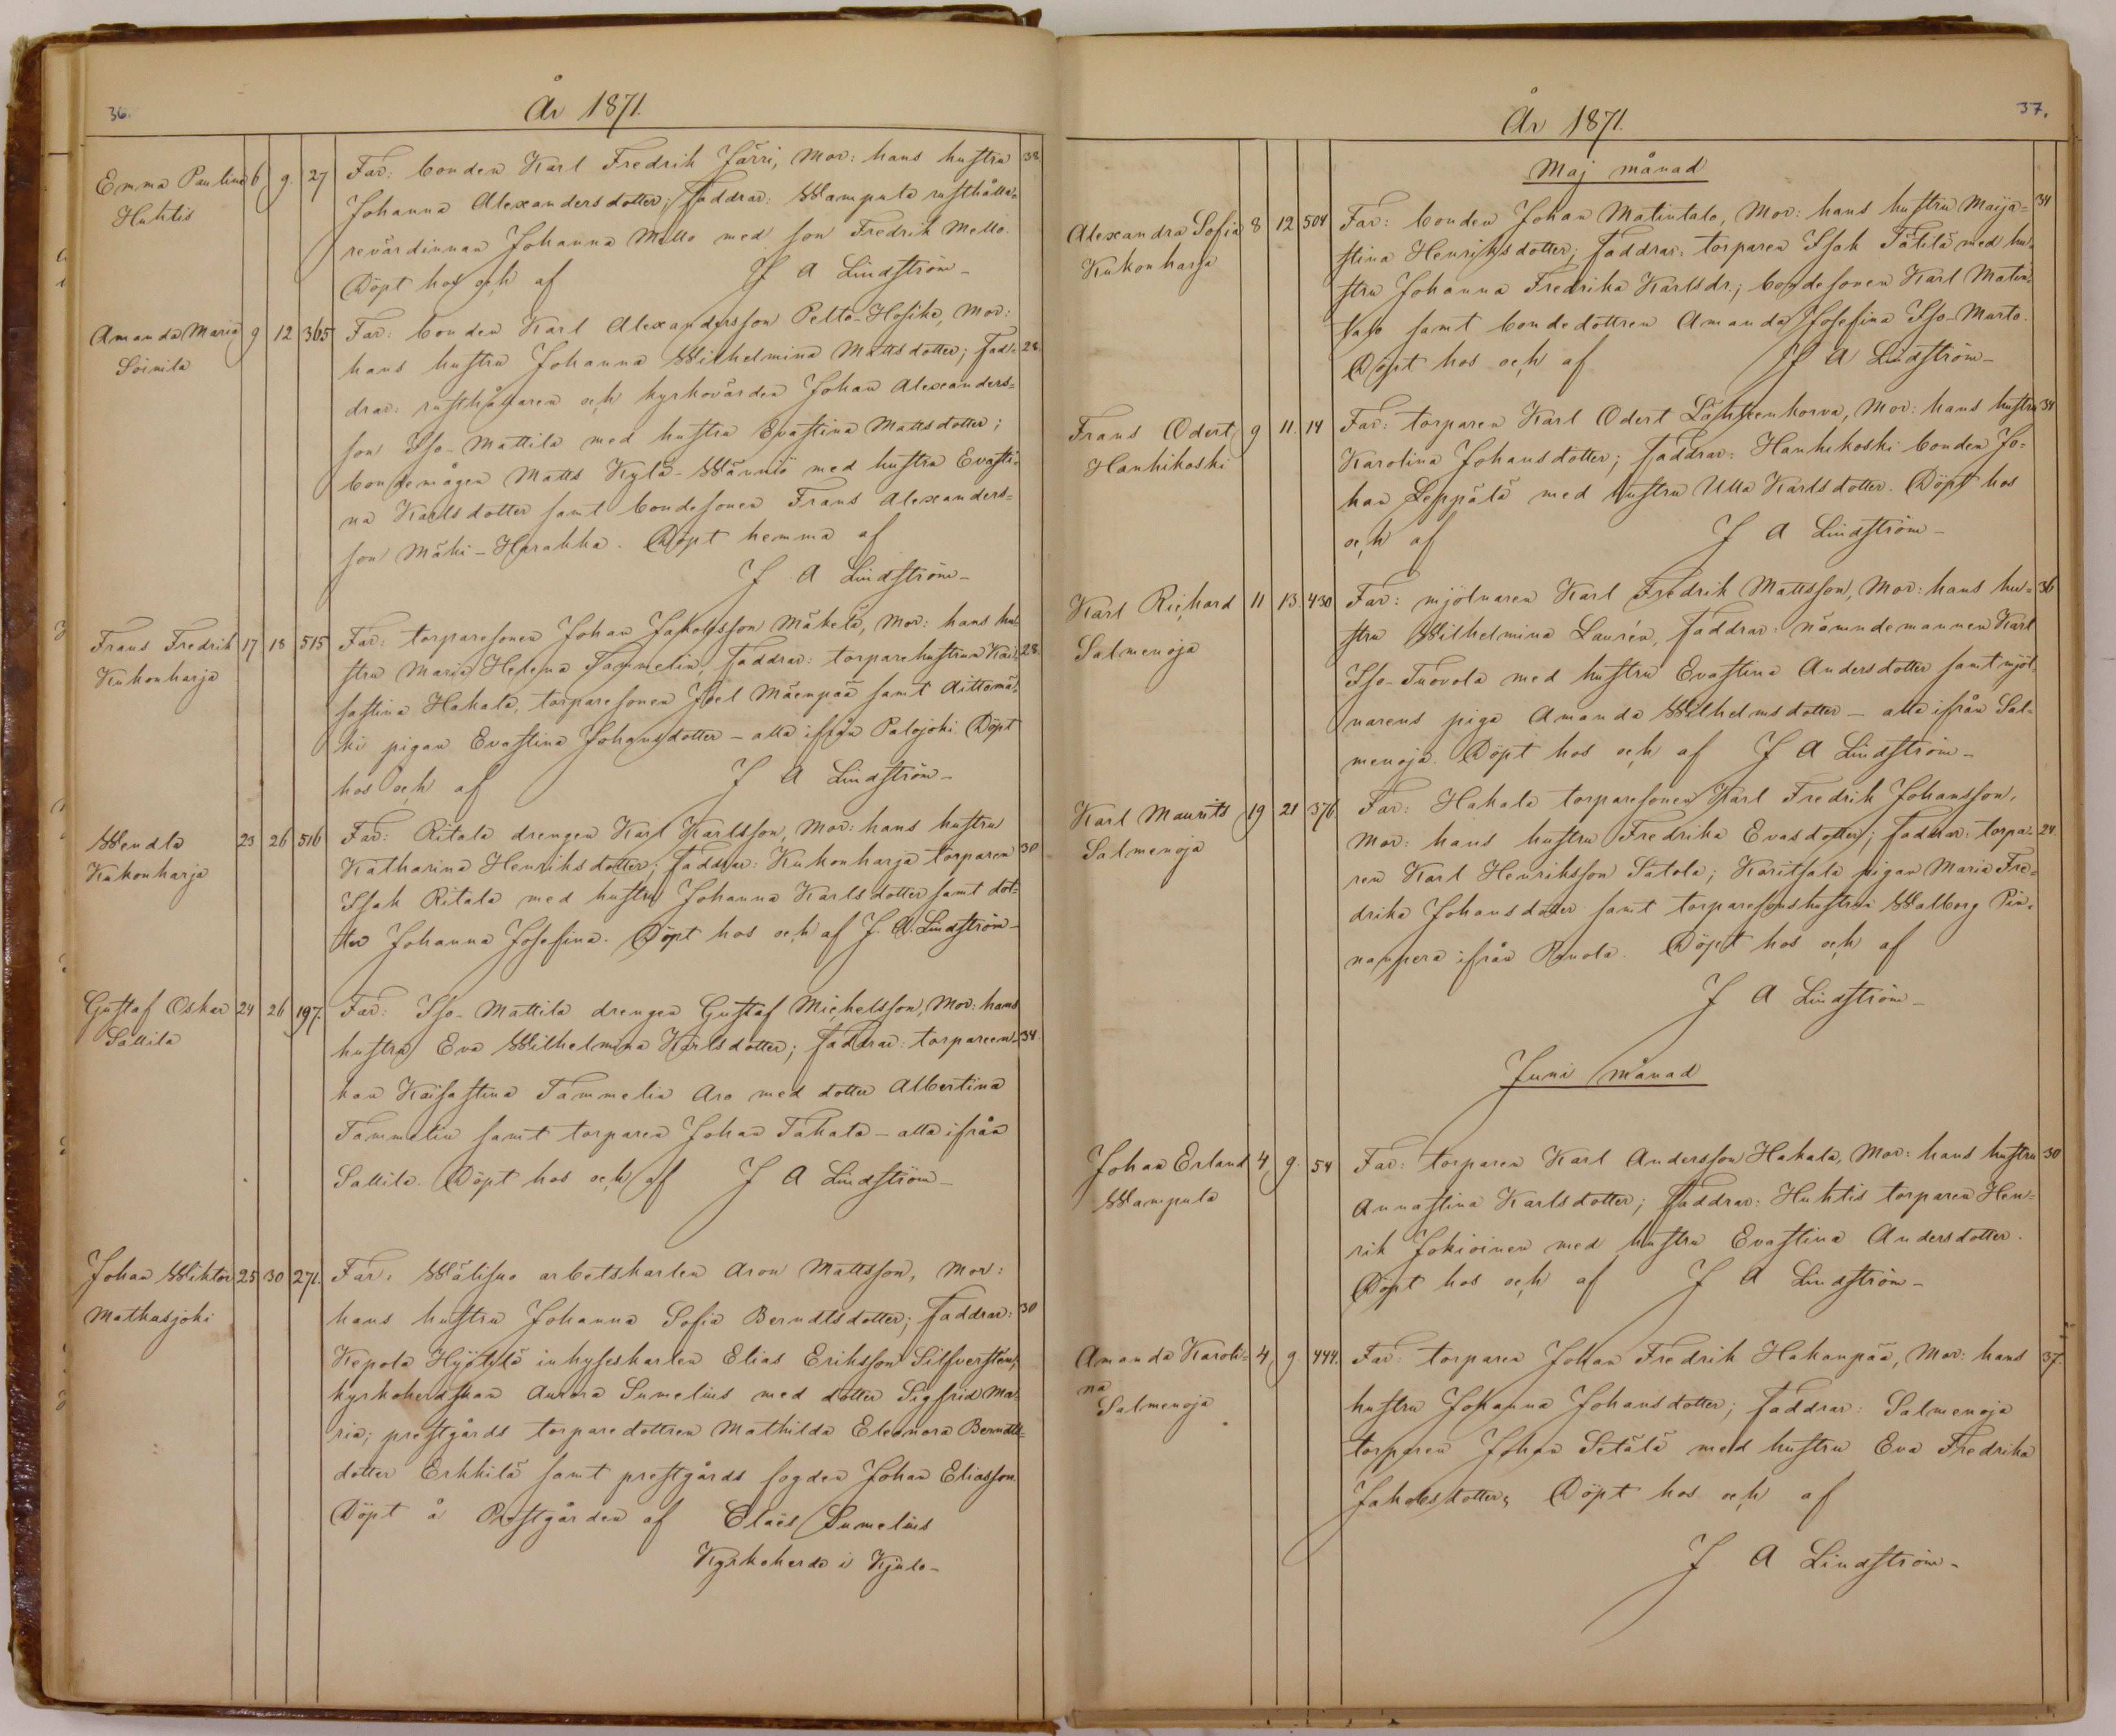 36.
År 1871.
Emma Paulina 6 9. 27 Far: bonden Karl Fredrik Järri, Mor: hans hustru 38
Huhtis Johanna Alexandersdotter; Faddrar: Wampula rusthålla-
revärdinnan Johanna Mello med son Fredrik Mello.
Döpt hos och af J A Lindström-
Amanda Maria 9 12 365 Far: bonden Karl Alexandersson Pelto-Hosike, Mor:
Soinila hans hustru Johanna Wilhelmina Mattsdotter; Fad- 28.
drar: rusthållaren och kyrkovärden Johan Alexanders-
son Iso-Mattila med hustru Evastina Mattsdotter;
bondemågen Matts Kylä-Wänniö med hustru Evasti-
na Karlsdotter samt bondesonen Frans Alexanders-
son Mäki-Harakka. Döpt hemma af
J A Lindström-
Frans Fredrik 17 18 515 Far: torparesonen Johan Jakobsson Mäkelä, Mor: hans hu-
Kukonharja stru Maria Helena Tammelin, Faddrar: torparehustrun Kai- 28.
sastina Hakala, torparesonen Joel Mäenpää samt dittomä-
ki pigan Evastina Johansdotter - alla ifrån Palojoki Döpt
hos och af J A Lindström-
Wendla 23 26 516 Far: Ritala drengen Karl Karlsson, Mor: hans hustru
Kukonharja Katharina Henriksdotter; Faddrar: Kukonharja torparen 30
Isak Ritala med hustru Johanna Karlsdotter samt dot-
ter Johanna Josefina. Döpt hos och af J. A. Lindström-
Gustaf Oskar 24 26 197. Far: Iso-Mattila drengen Gustaf Michelsson, Mor: hans
Sallila hustru Eva Wilhelmina Karlsdotter; Faddrar: torpareen- 34.
kan Kaisastina Tammelin Aro med dotter Albertina
Tammelin samt torparen Johan Takala - alla ifrån
Sallila. Döpt hos och af J A Lindström-
Johan Wiktor 25 30 271. Far: Wälisuo arbetskarlen Aron Mattsson, Mor:
Matkasjoki hans hustru Johanna Sofia Berndtsdotter; Faddrar: 30
Kepola Hyötylä inhyseskarlen Elias Eriksson Silfversten,
kyrkoherdskan Aurora Sumelius med dotter Sigfrid Ma-
ria; prestgårds torparedottren Mathilda Eleonora Berndts-
dotter Erkkilä samt prestgårds fogden Johan Eliasson.
Döpt å Prestgården af Claës Sumelius
Kyrkoherde i Kjulo-
37.
År 1871.
Maj månad
Alexandra Sofia 8 12 504 Far: bonden Johan Matintalo, Mor: hans hustru Maija- 34
Kukonharja stina Henriksdotter; Faddrar: torparen Isak Tätilä med hu-
stru Johanna Fredrika Karlsdr.; bondesonen Karl Matin-
talo samt bondedottren Amanda Josefina Iso-Murto.
Döpt hos och af J A Lindström-
Frans Odert 9 11. 14 Far: torparen Karl Odert Lähteenkorva, Mor: hans hustru 34
Hanhikoski Karolina Johansdotter; Faddrar: Hanhikoski bonden Jo-
han Leppälä med hustru Ulla Karlsdotter. Döpt hos
och af J A Lindström-
Karl Richard 11 13. 430 Far: mjölnaren Karl Fredrik Mattsson, Mor: hans hu- 36
Salmenoja stru Wilhelmina Laurén, Faddrar: nämndemannen Karl
Iso-Tuovola med hustru Evastina Andersdotter samt mjöl-
narens piga Amanda Wilhelmsdotter - alla ifrån Sal-
menoja. Döpt hos och af J A Lindström-
Karl Maurits 19 21 376. Far: Hakala torparesonen Karl Fredrik Johansson,
Salmenoja Mor: hans hustru Fredrika Evasdotter; Faddrar: torpa- 24.
ren Karl Henriksson Satola; Karitsala pigan Maria Fre-
drika Johansdotter samt torparesonshustru Walborg Pin-
nanperä ifrån Ronola. Döpt hos och af
J A Lindström-
Juni månad
Johan Erland 4 9. 54 Far: torparen Karl Andersson Hakala, Mor: hans hustru 30
Wampula Annastina Karlsdotter; Faddrar: Huhtis torparen Hen-
rik Jokioinen med hustru Evastina Andersdotter.
Döpt hos och af J A Lindström-
Amanda Karoli- 4 9. 444. Far: torparen Johan Fredrik Hakanpää, Mor: hans 37.
na
Salmenoja hustru Johanna Johansdotter; Faddrar: Salmenoja
torparen Johan Setälä med hustru Eva Fredrika
Jakobsdotter, Döpt hos och af
J. A Lindström-